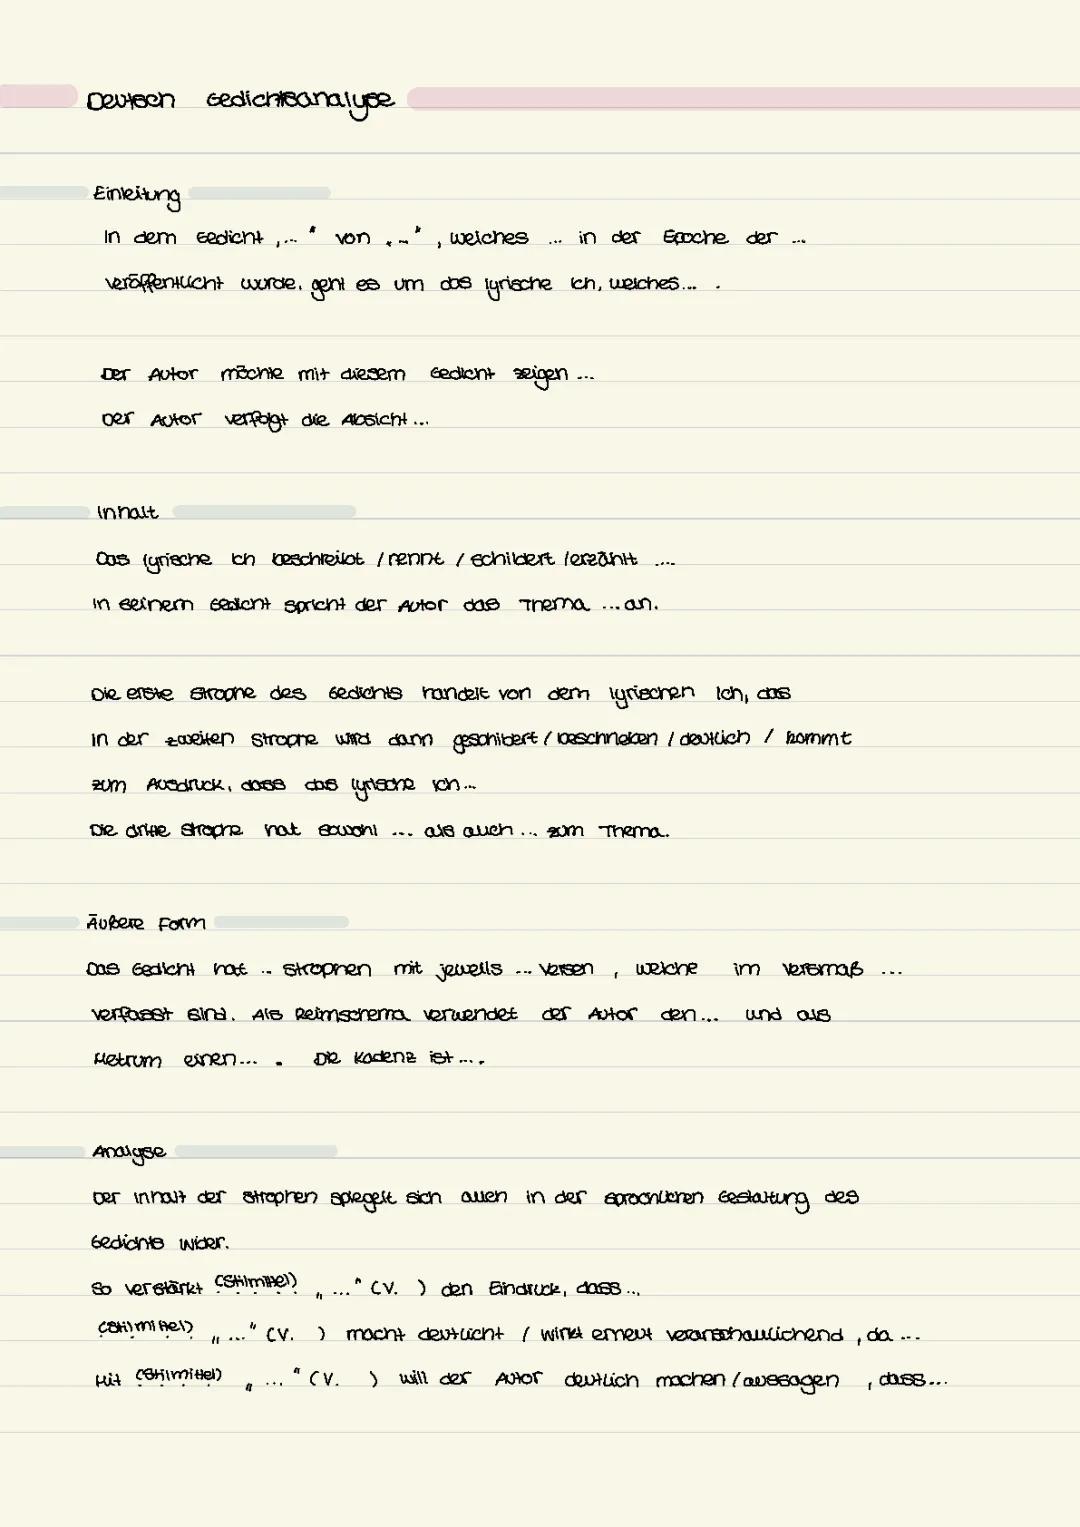 Deutsch Gedichtsanalyse
Einleitung
In dem Gedicht „..." von „...", welches ... in der Epoche der ...
veröffentlicht wurde, geht es um das lyrische Ich, welches... .
Der Autor möchte mit diesem Gedicht zeigen ...
Der Autor verfolgt die Absicht ...
Inhalt
Das lyrische Ich beschreibt / nennt / schildert / erzählt ....
In seinem Gedicht spricht der Autor das Thema ... an.
Die erste Strophe des Gedichts handelt von dem lyrischen Ich, das
In der zweiten Strophe wird dann geschildert / beschrieben / deutlich / kommt
zum Ausdruck, dass das lyrische Ich ...
Die dritte Strophe hat sowohl ... als auch ... zum Thema.
Äußere Form
Das Gedicht hat ... Strophen mit jeweils ... Versen , welche im Versmaß ...
verfasst sind. Als Reimschema verwendet der Autor den ... und als
Metrum einen ... . Die Kadenz ist ... .
Analyse
Der Inhalt der Strophen spiegelt sich auch in der sprachlichen Gestaltung des
Gedichts wider.
So verstärkt (Stilmittel) „ ..." (V. ) den Eindruck, dass ...
(Stilmittel) „ ..." (V. ) macht deutlicht / wirkt erneut veranschaulichend , da ...
Mit (Stilmittel) „ ... " (V. ) will der Autor deutlich machen / aussagen , dass ...